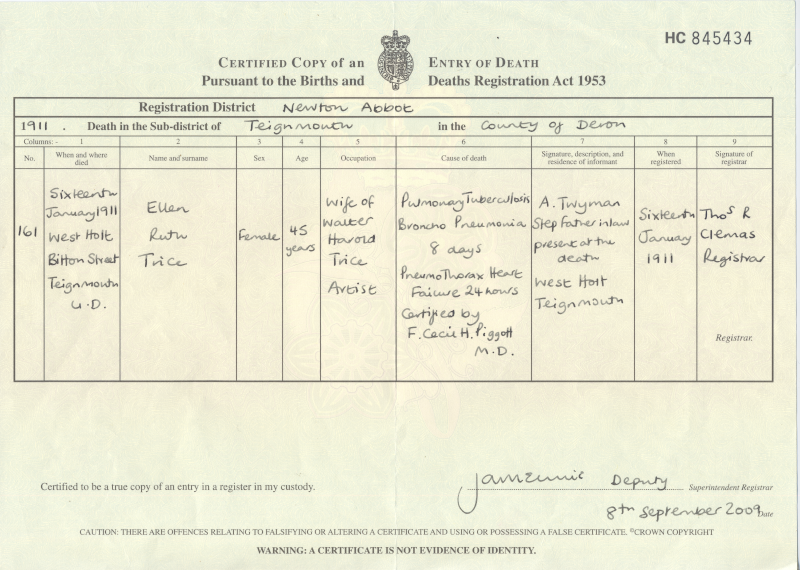 HC 845434
CERTIFIED COPY OF AN ENTRY OF DEATH
Pursuant to the Births and Deaths Registration Act 1953
Registration District Newton Abbot
1911. Death in the Sub-district of Teignmouth in the County of Devon
Columns:- 1 2 3 4 5 6 7 8 9
No. When and where died Name and surname Sex Age Occupation Cause of death Signature, description, and residence of informant When registered Signature of registrar
161
Sixteenth
January 1911
West Holt
Bitton Street
Teignmouth
U.D.
Ellen
Ruth
Trice
Female
45
years
Wife of
Walter
Harold
Trice
Artist
Pulmonary Tuberculosis
Broncho Pneumonia
8 days
PneumoThorax Heart
Failure 24 hours
Certified by
F. Cecil H. Piggott
M.D.
A. Twyman
Step Father in law
present at the
death
West Holt
Teignmouth
Sixteenth
January
1911
Thos R
Clemas
Registrar
Registrar.
Certified to be a true copy of an entry in a register in my custody.
Deputy Superintendent Registrar
8th September 2009 Date
CAUTION: THERE ARE OFFENCES RELATING TO FALSIFYING OR ALTERING A CERTIFICATE AND USING OR POSSESSING A FALSE CERTIFICATE. ©CROWN COPYRIGHT
WARNING: A CERTIFICATE IS NOT EVIDENCE OF IDENTITY.